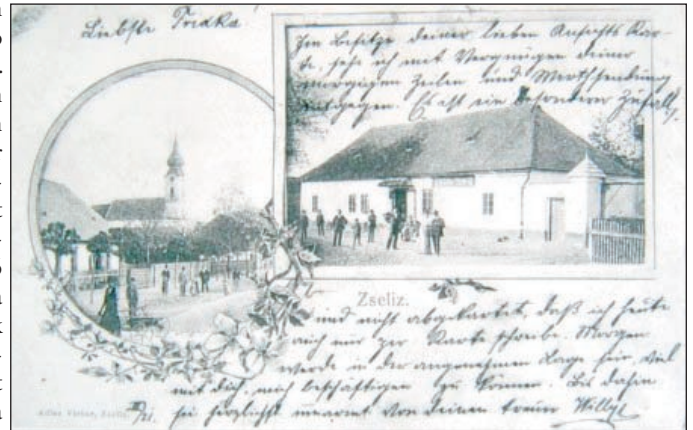 Liebste Fridka!
Im Besitze deiner lieben Ansichts Kar-
te, sehe ich mit Vergnügen deiner
morgigen Zeilen und Werthsendung
entgegen. Es ist ein besonderer Zufall,
Zseliz.
und nicht abgekartet, daß ich heute
auch nur per Karte schreibe. Morgen
werde in der angenehmen Lage sein, viel
mit dich, mich beschäftigen zu können. Bis dahin
sei herzlichst umarmt von deinem treuen Willy